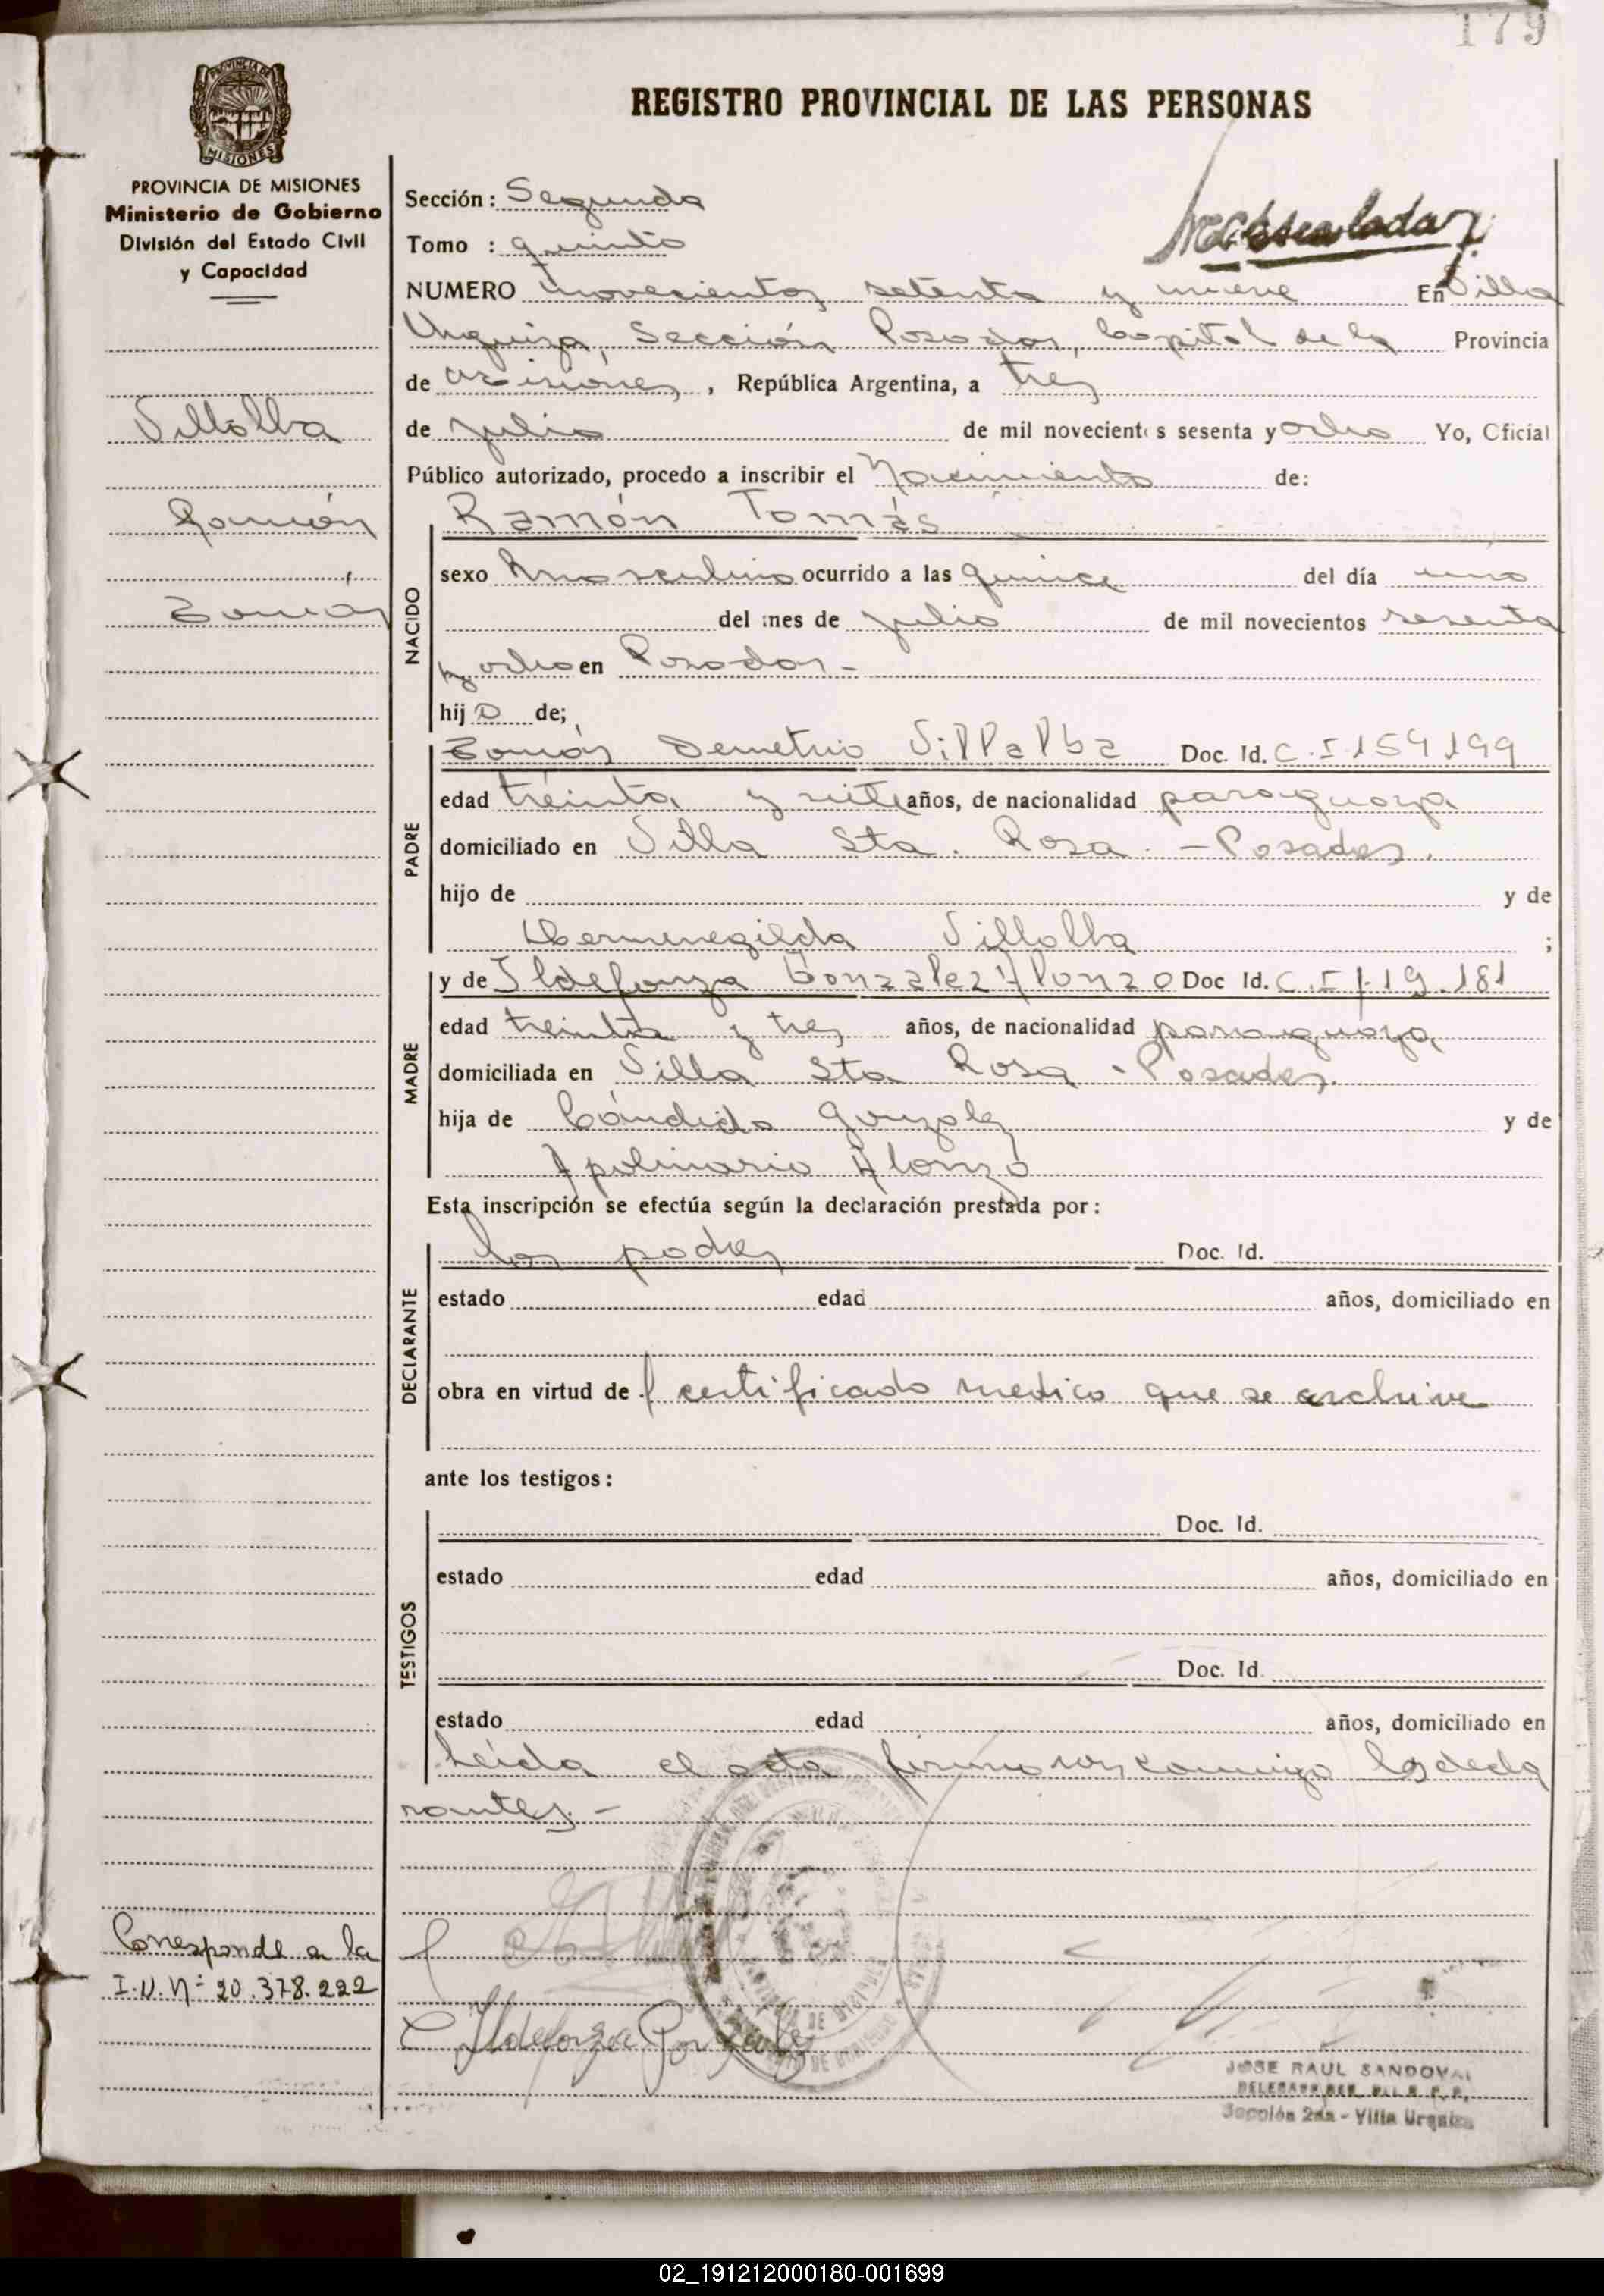 179
REGISTRO PROVINCIAL DE LAS PERSONAS
PROVINCIA DE
MISIONES
PROVINCIA DE MISIONES
Ministerio de Gobierno
División del Estado Civil
y Capacidad
Sección: Segunda
Tomo : quinto
NUMERO novecientos setenta y nueve En Villa
Urquiza, Sección Posadas, Capital de la Provincia
de Misiones, República Argentina, a tres
de julio de mil novecientos sesenta y ocho Yo, Oficial
Público autorizado, procedo a inscribir el Nacimiento de:
Villalba
Ramón
Tomás
NACIDO
Ramón Tomás
sexo masculino ocurrido a las quince del día uno
del mes de julio de mil novecientos sesenta
y ocho en Posadas.-
hijo de;
PADRE
Tomás Demetrio Villalba Doc. Id. C.I 159199
edad treinta y siete años, de nacionalidad paraguaya
domiciliado en Villa Sta. Rosa.-Posadas.
hijo de y de
Hermenegilda Villalba ;
MADRE
y de Ildefonza Gonzalez Alonzo Doc Id. C.I 119.181
edad treinta y tres años, de nacionalidad paraguaya,
domiciliada en Villa Sta Rosa - Posadas.
hija de Cándido Gonzalez y de
Apolinaria Alonzo
Esta inscripción se efectúa según la declaración prestada por:
DECLARANTE
los padres Doc. Id.
estado edad años, domiciliado en
obra en virtud de certificado medico que se archive
ante los testigos:
TESTIGOS
Doc. Id.
estado edad años, domiciliado en
Doc. Id.
estado edad años, domiciliado en
Leída el acta firman conmigo los decla
rantes.-
Corresponde a la
I.N.Nº 20.378.222
Ildefonza Gonzalez
JOSE RAUL SANDOVAL
Sección 2da - Villa Urquiza
02_191212000180-001699